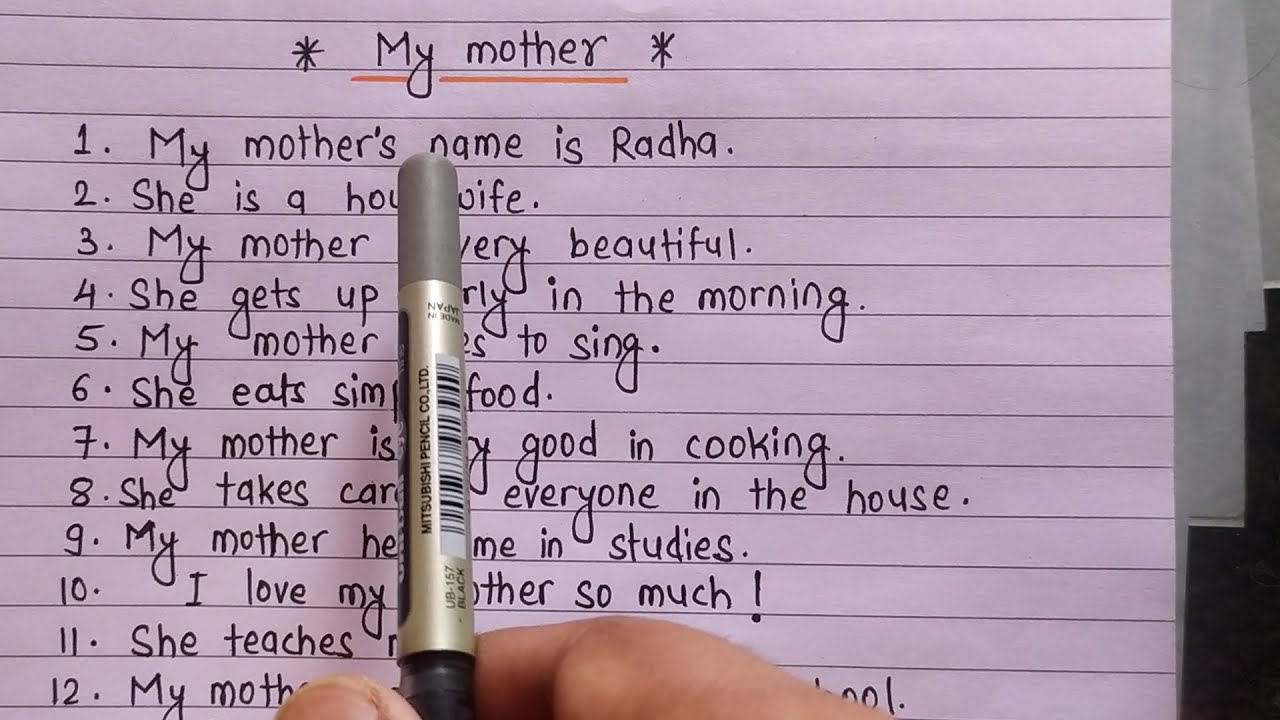 * My mother *
1. My mother's name is Radha.
2. She is a
3. My mother very beautiful.
4. She gets up in the morning.
5. My mother to sing.
6. She eats food.
7. My mother is good in cooking.
8. She takes everyone in the house.
9. My mother me in studies.
10. I love my so much!
11. She teaches
12. My
MADE IN
JAPAN
MITSUBISHI PENCIL CO.,LTD.
UB-157
BLACK